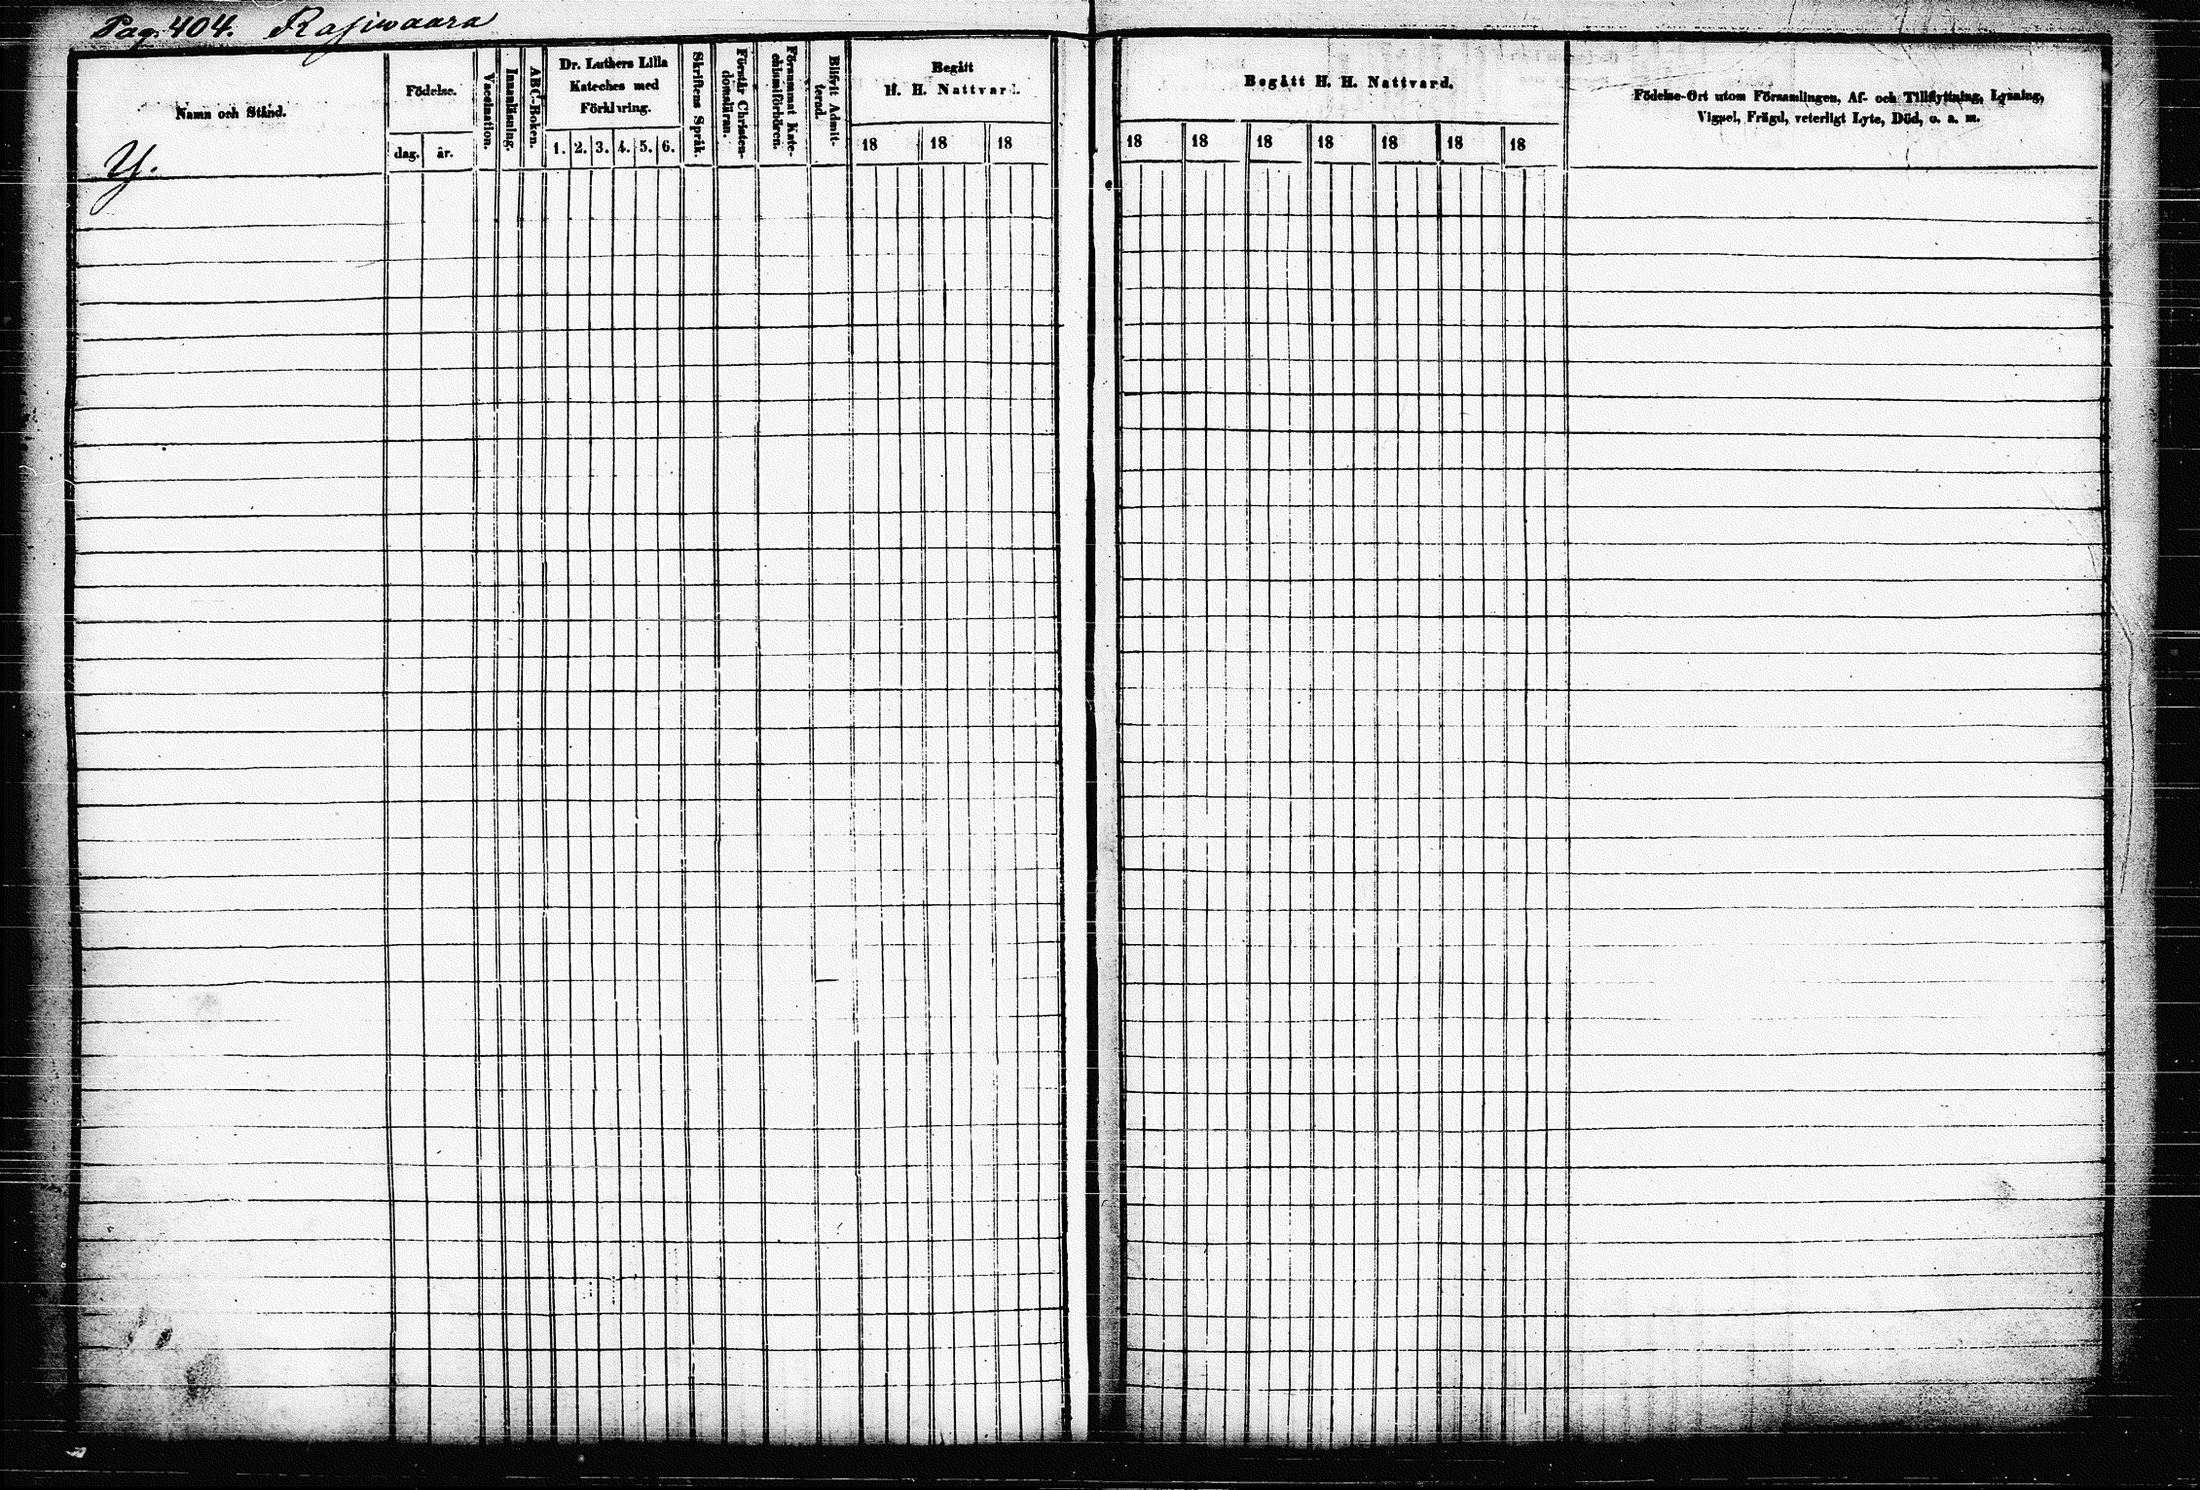 Pag. 404. Rajiwaara
Namn och Stånd.
Y.
Födelse.
dag. år.
Vaccination.
Innanläsning.
ABC-Boken.
Dr. Luthers Lilla
Kateches med
Förklaring.
1. 2. 3. 4. 5. 6.
Skriftens Språk.
Förstår Christen-
domsläran.
Försummat Kate-
chismiförhören.
Blifvit Admit-
terad.
Begått
H. H. Nattvard.
18 18 18
Begått H. H. Nattvard.
18 18 18 18 18 18 18
Födelse-Ort utom Församlingen, Af- och Tillflyttning, Lysning,
Vigsel, Frägd, veterligt Lyte, Död, o. a. m.